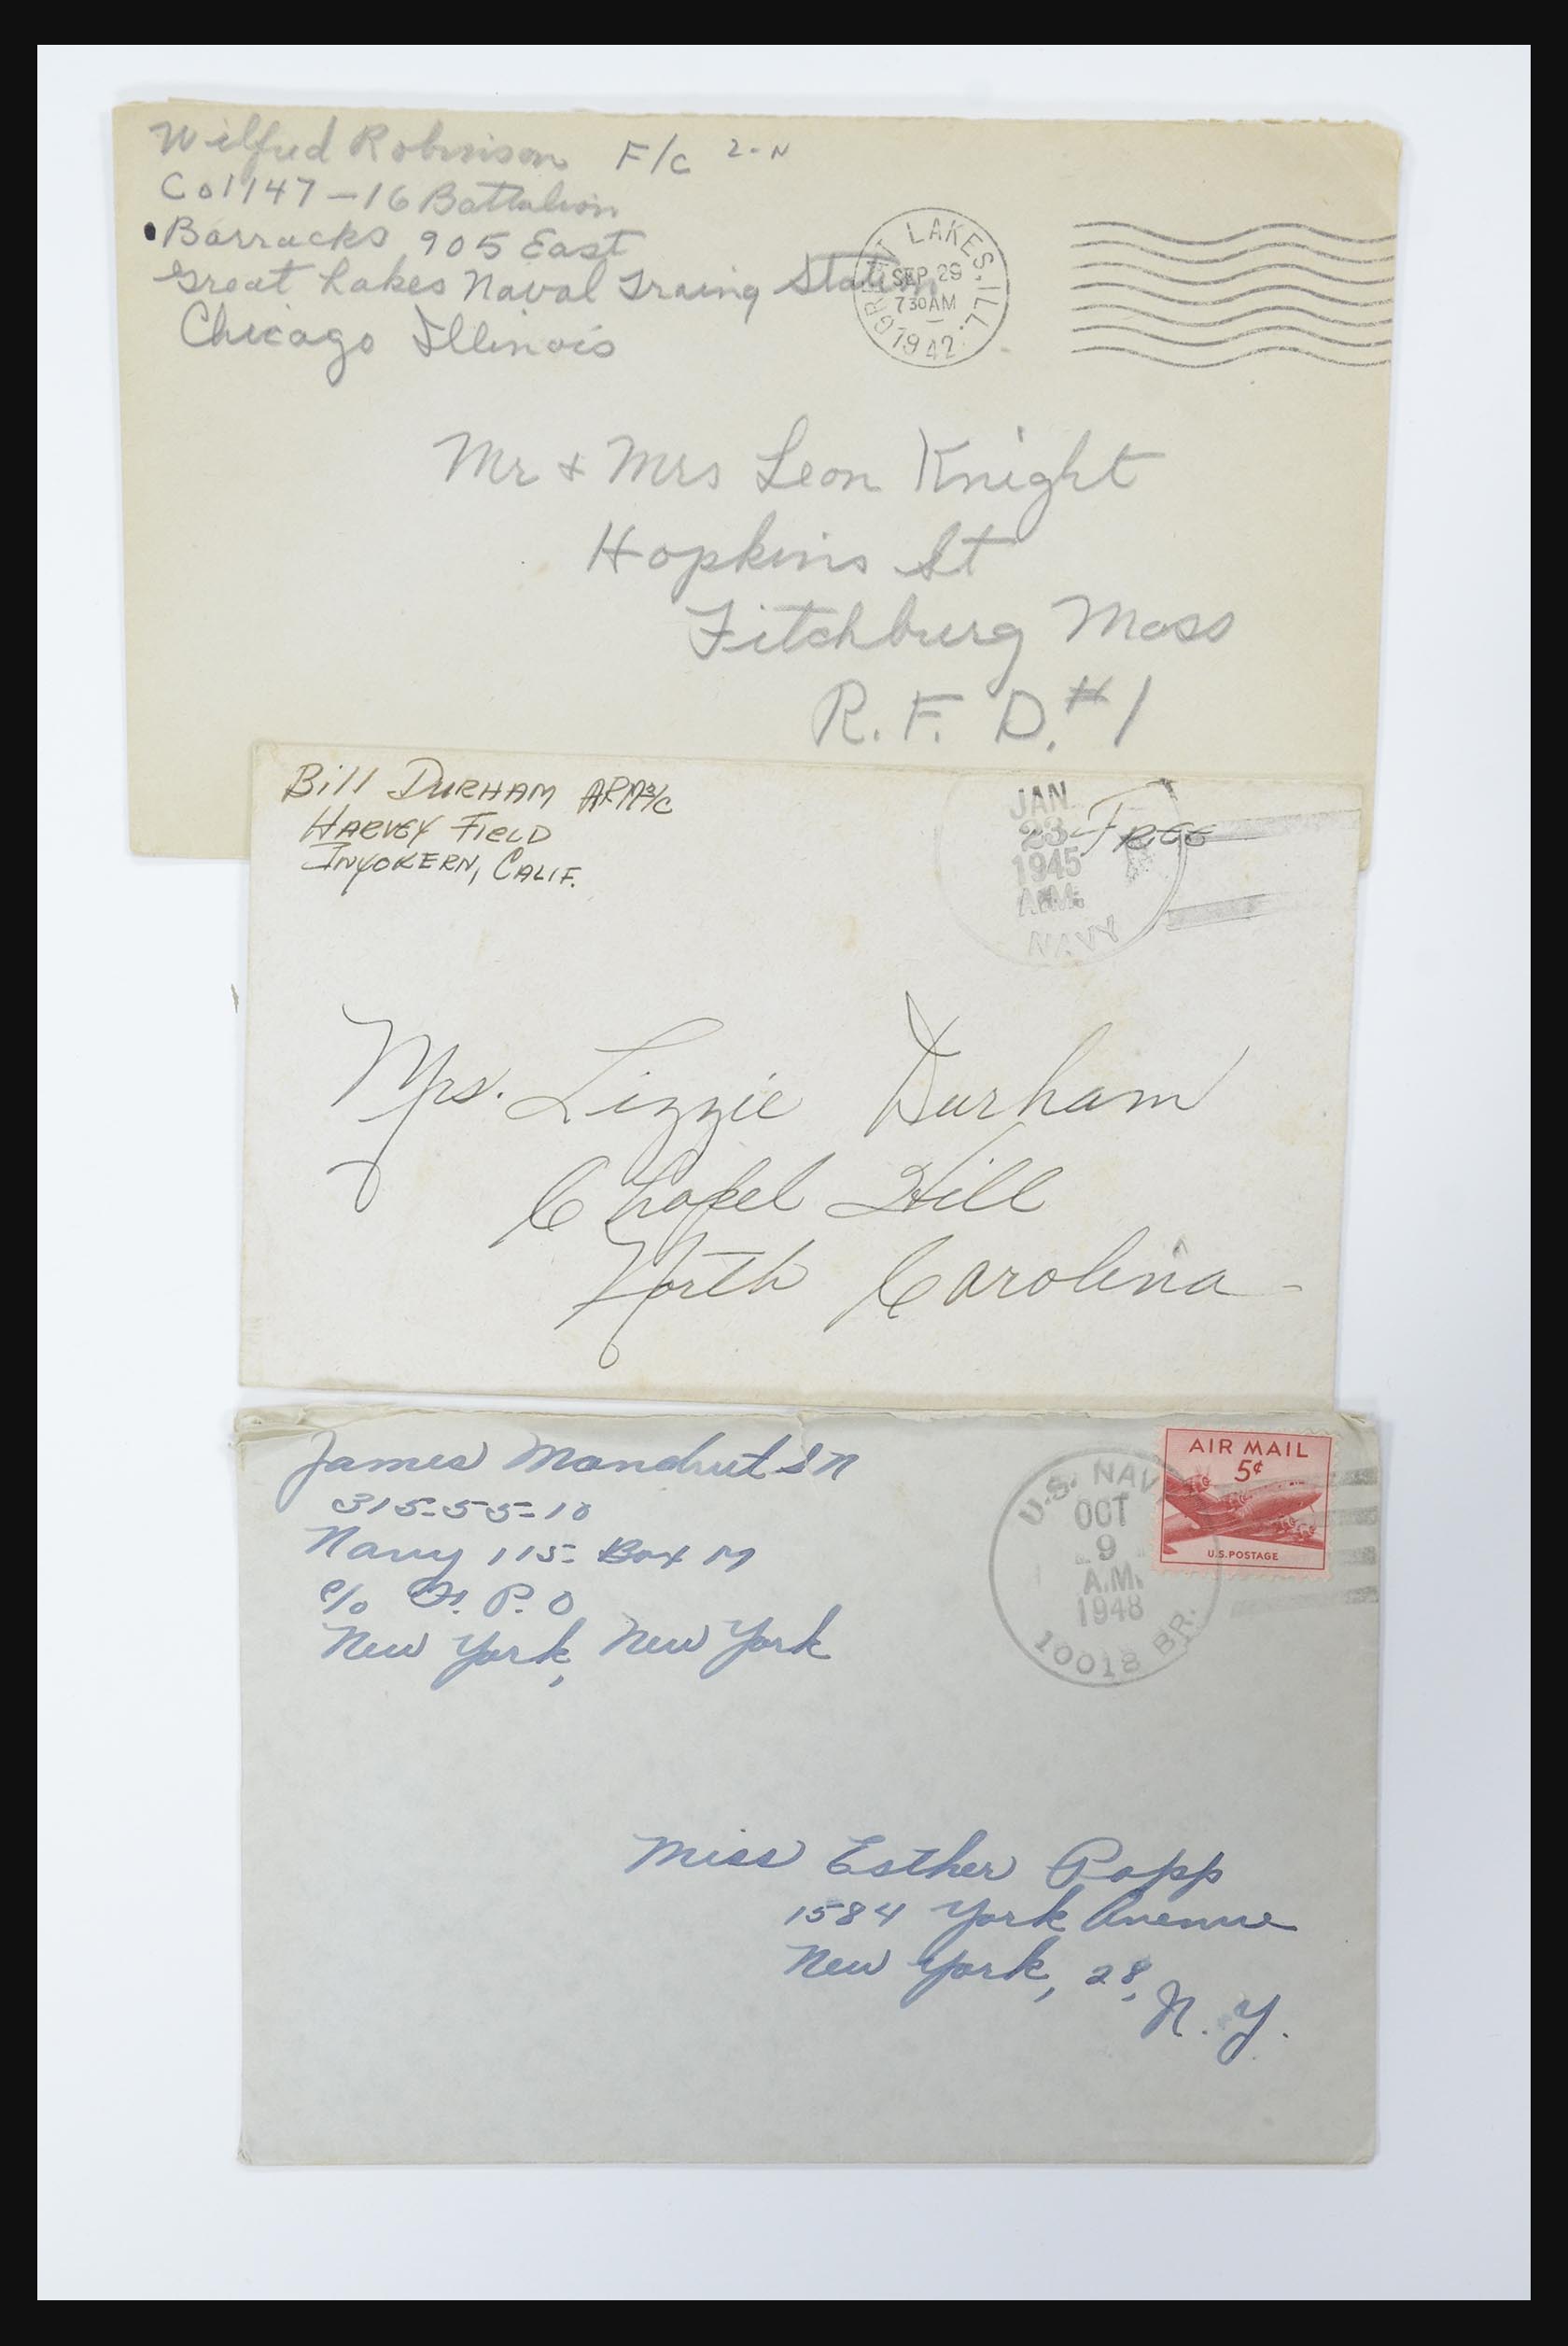 Wilfred Robinson F/C 2-N
Co 1147 - 16 Battalion
Barracks 905 East
Great Lakes Naval Traing Station
Chicago Illinois
GREAT LAKES, ILL.
SEP 29
730AM
1942
Mr + Mrs Leon Knight
Hopkins St
Fitchburg Mass
R. F. D. #1
Bill DURHAM ARM3/C
HARVEY FIELD
INYOKERN, CALIF.
JAN
23
1945
A.M.
NAVY
FREE
Mrs. Lizzie Durham
Chapel Hill
North Carolina
James Mandrut SN
315-55-10
Navy 115 Box M
c/o F. P. O
New York, New York
U.S. NAVY
OCT
9
A.M.
1948
10018 BR.
AIR MAIL
5¢
U.S. POSTAGE
Miss Esther Popp
1584 York Avenue
New York, 28, N. Y.